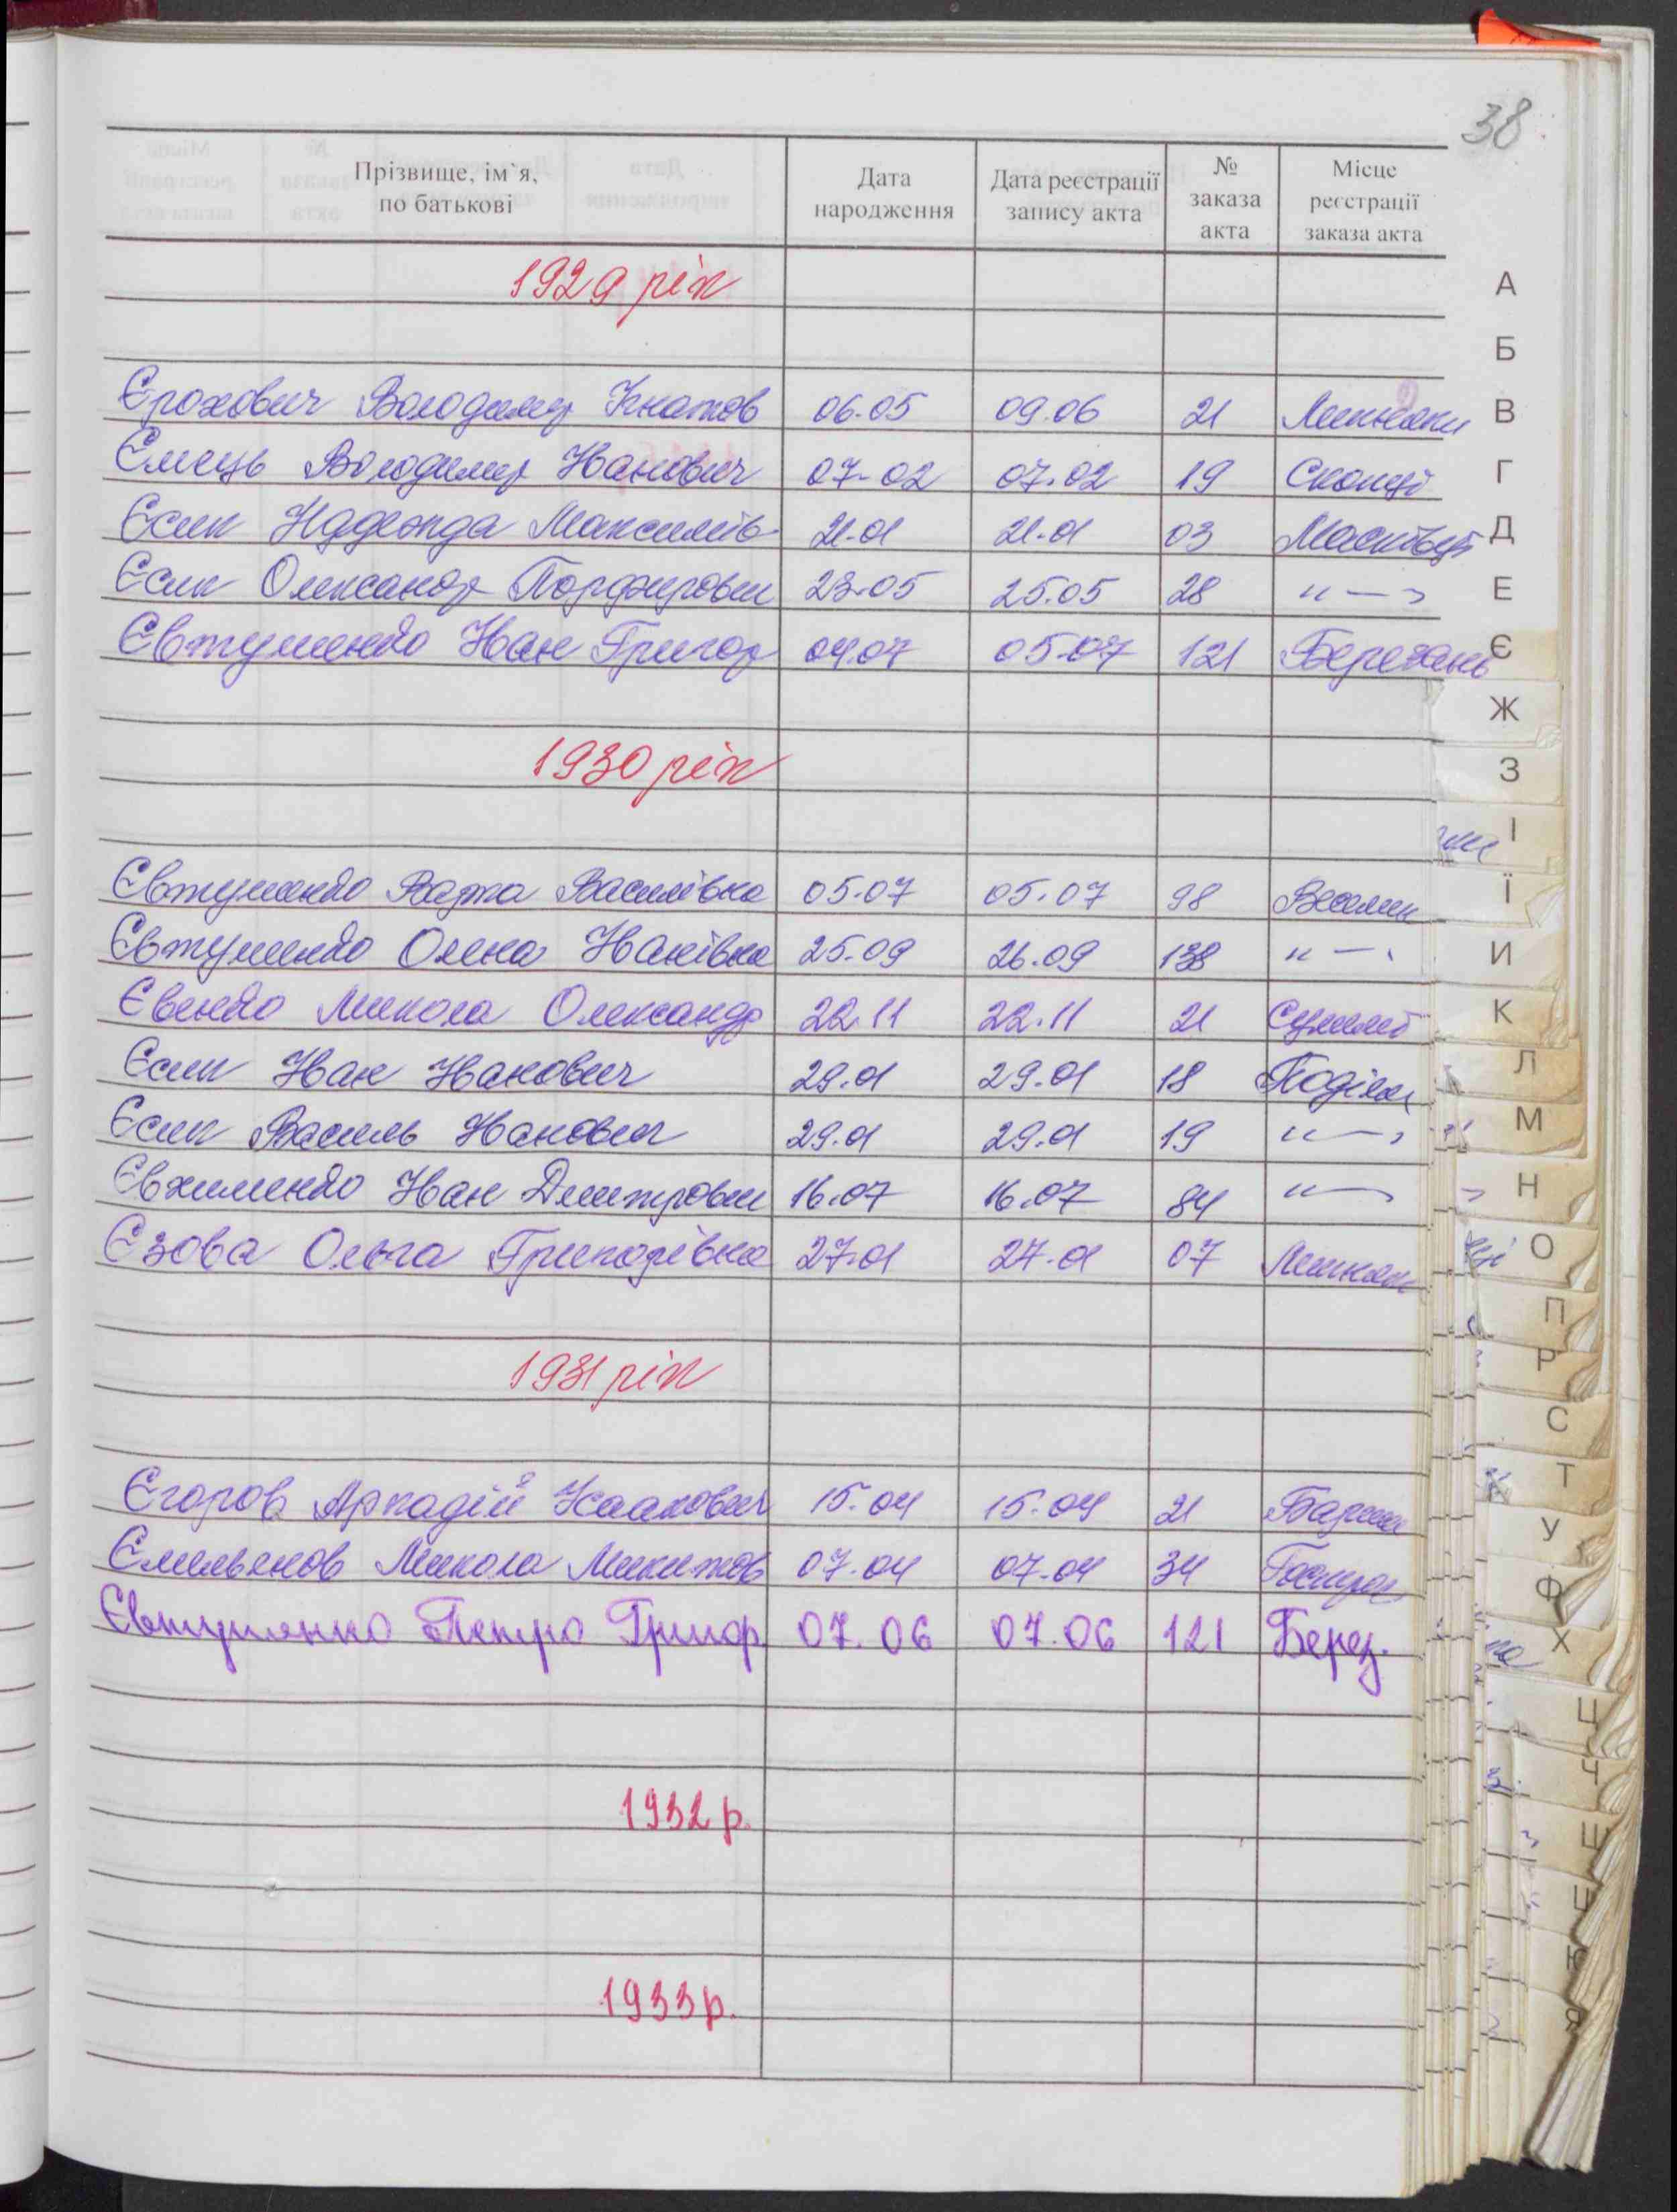 38
Прізвище, ім`я, по батькові Дата народження Дата реєстрації запису акта № заказа акта Місце реєстрації заказа акта
1929 рік
Єрохович Володимир Ігнатов 06.05 09.06 21 Лишняки
Ємець Володимир Іванович 07-02 07.02 19 Скопці
Єсип Надежда Максимів 21.01 21.01 03 Масківці
Єсип Олександр Порфирович 23.05 25.05 28 "—"
Євтушенко Іван Григор 04.07 05.07 121 Березань
1930 рік
Євтушенко Василівна 05.07 05.07 98
Євтушенко Олена Іванівна 25.09 26.09 138 "—"
Євенко Микола Олександр 22.11 22.11 21
Єсип Іван Іванович 29.01 29.01 18 Поділля
Єсип Василь Іванович 29.01 29.01 19 "—"
Євхименко Іван Дмитрович 16.07 16.07 84 "—"
Єзова Ольга Григорівна 27.01 27.01 07 Лишняк
1931 рік
Єгоров Аркадій Ісаакович 15.04 15.04 21
Ємельянов Микола Микитов 07.04 07.04 34
Євтушенко Петро Григор 07.06 07.06 121 Берез.
1932 р.
1933 р.
А
Б
В
Г
Д
Е
Є
Ж
З
І
Ї
И
К
Л
М
Н
О
П
Р
С
Т
У
Ф
Х
Ц
Ч
Я